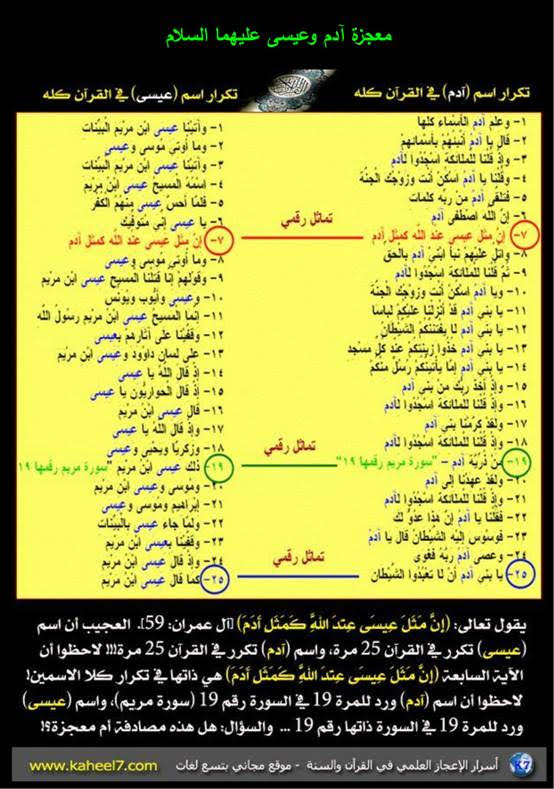 معجزة آدم وعيسى عليهما السلام
تكرار اسم (آدم) في القرآن كله
١- وعلم آدم الأسماء كلها
٢- قال يا آدم أنبئهم بأسمائهم
٣- وإذ قلنا للملائكة اسجدوا لآدم
٤- وقلنا يا آدم اسكن أنت وزوجك الجنة
٥- فتلقى آدم من ربه كلمات
٦- إن الله اصطفى آدم
٧- إن مثل عيسى عند الله كمثل آدم
٨- واتل عليهم نبأ ابني آدم بالحق
٩- ثم قلنا للملائكة اسجدوا لآدم
١٠- ويا آدم اسكن أنت وزوجك الجنة
١١- يا بني آدم قد أنزلنا عليكم لباسا
١٢- يا بني آدم لا يفتننكم الشيطان
١٣- يا بني آدم خذوا زينتكم عند كل مسجد
١٤- يا بني آدم إما يأتينكم رسل منكم
١٥- وإذ أخذ ربك من بني آدم
١٦- وإذ قلنا للملائكة اسجدوا لآدم
١٧- ولقد كرمنا بني آدم
١٨- وإذ قلنا للملائكة اسجدوا لآدم
١٩- من ذرية آدم - "سورة مريم رقمها ١٩"
٢٠- ولقد عهدنا إلى آدم
٢١- وإذ قلنا للملائكة اسجدوا لآدم
٢٢- فقلنا يا آدم إن هذا عدو لك
٢٣- فوسوس إليه الشيطان قال يا آدم
٢٤- وعصى آدم ربه فغوى
٢٥- يا بني آدم أن لا تعبدوا الشيطان
تماثل رقمي
تماثل رقمي
تماثل رقمي
تكرار اسم (عيسى) في القرآن كله
١- وآتينا عيسى ابن مريم البينات
٢- وما أوتي موسى وعيسى
٣- وآتينا عيسى ابن مريم البينات
٤- اسمه المسيح عيسى ابن مريم
٥- فلما أحس عيسى منهم الكفر
٦- يا عيسى إني متوفيك
٧- إن مثل عيسى عند الله كمثل آدم
٨- وما أوتي موسى وعيسى
٩- وقولهم إنا قتلنا المسيح عيسى ابن مريم
١٠- وعيسى وأيوب ويونس
١١- إنما المسيح عيسى ابن مريم رسول الله
١٢- وقفينا على آثارهم بعيسى
١٣- على لسان داوود وعيسى ابن مريم
١٤- إذ قال الله يا عيسى
١٥- إذ قال الحواريون يا عيسى
١٦- قال عيسى ابن مريم
١٧- وإذ قال الله يا عيسى
١٨- وزكريا ويحيى وعيسى
١٩- ذلك عيسى ابن مريم "سورة مريم رقمها ١٩
٢٠- وموسى وعيسى ابن مريم
٢١- إبراهيم وموسى وعيسى
٢٢- ولما جاء عيسى بالبينات
٢٣- وقفينا بعيسى ابن مريم
٢٤- وإذ قال عيسى ابن مريم
٢٥- كما قال عيسى ابن مريم
يقول تعالى: (إِنَّ مَثَلَ عِيسَى عِندَ اللَّهِ كَمَثَلِ آدَمَ) [آل عمران: 59]. العجيب أن اسم
(عيسى) تكرر في القرآن 25 مرة، واسم (آدم) تكرر في القرآن 25 مرة!!! لاحظوا أن
الآية السابعة (إِنَّ مَثَلَ عِيسَى عِندَ اللَّهِ كَمَثَلِ آدَمَ) هي ذاتها في تكرار كلا الاسمين!
لاحظوا أن اسم (آدم) ورد للمرة 19 في السورة رقم 19 (سورة مريم)، واسم (عيسى)
ورد للمرة 19 في السورة ذاتها رقم 19 ... والسؤال: هل هذه مصادفة أم معجزة؟!
أسرار الإعجاز العلمي في القرآن والسنة - موقع مجاني بتسع لغات
K7
www.kaheel7.com